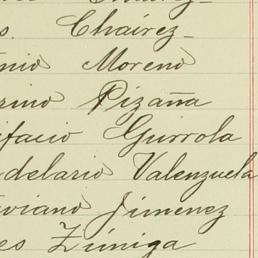 s. Chairez_
nio Moreno
rino Pizaña
ifacio Gurrola
delario Valenzuela
viviano Jimenez
es Zúniga